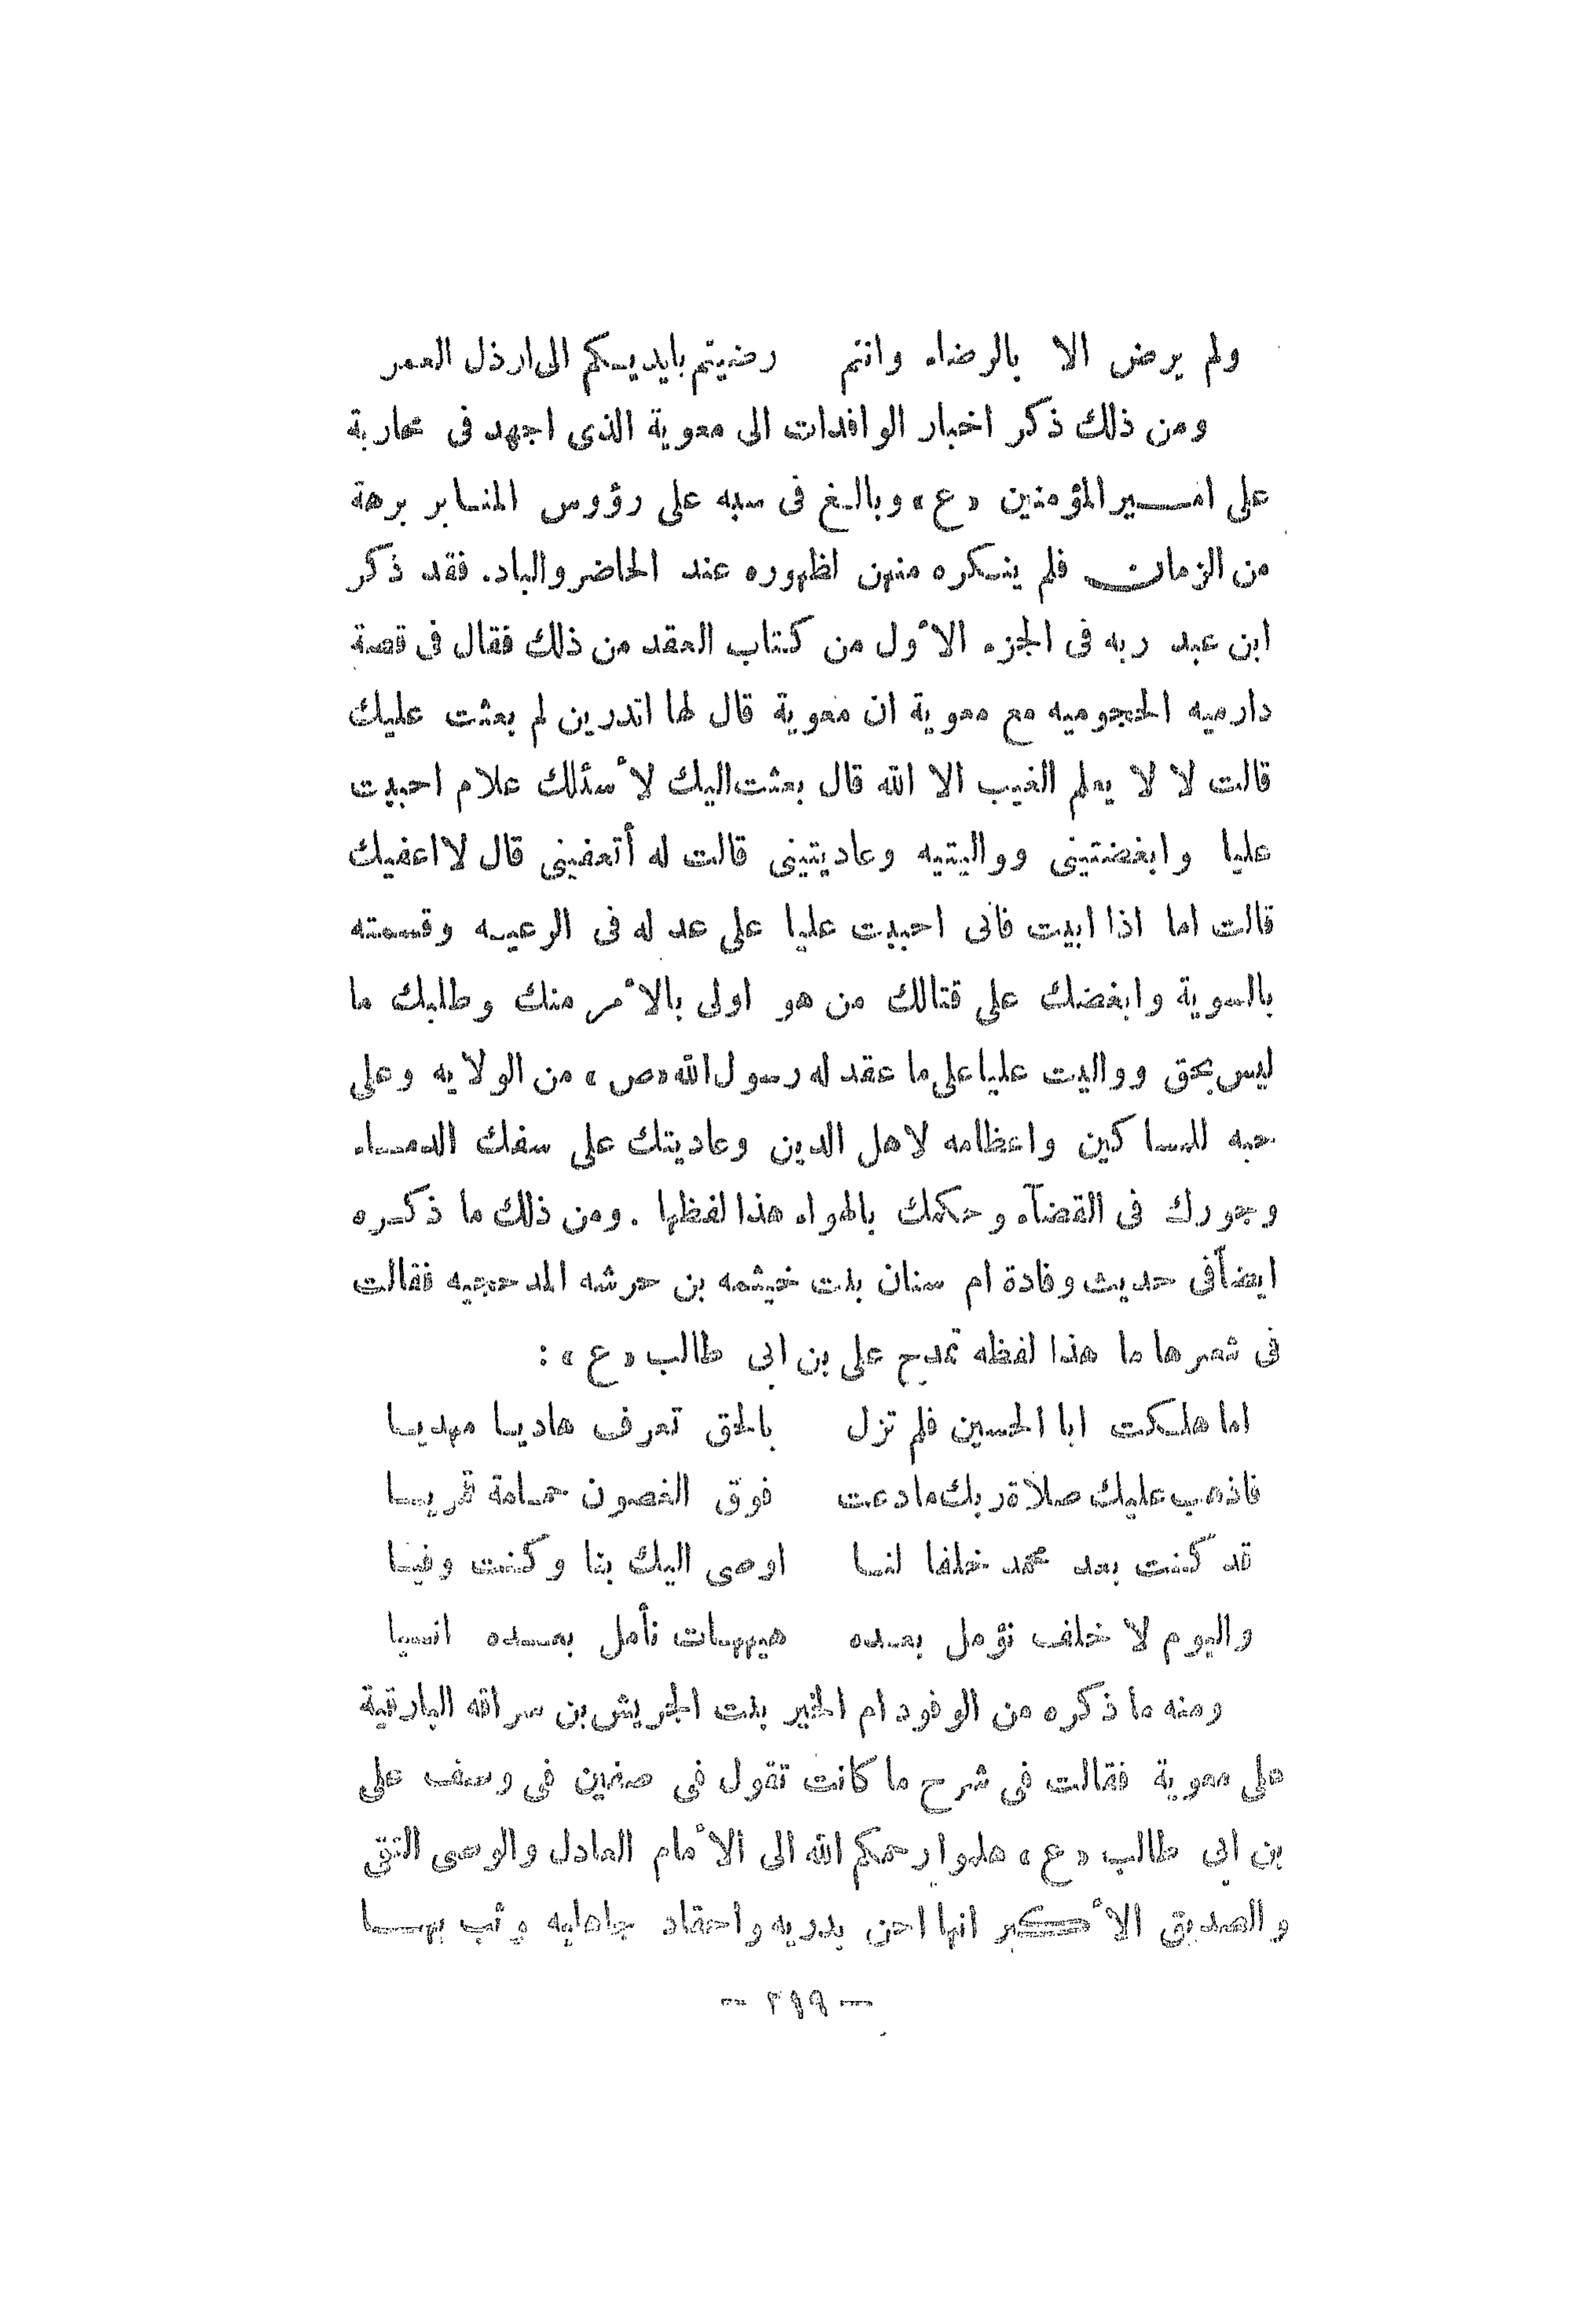 ولم يرض الا بالرضاء وانتم رضيتم بايديكم الى ارذل العمر
ومن ذلك ذكر اخبار الوافدات الى معوية الذى اجهد فى محاربة
على امير المؤمنين «ع» وبالغ فى سبه على رؤوس المنابر برهة
من الزمان فلم ينكره منهن لظهوره عند الحاضر والباد. فقد ذكر
ابن عبد ربه فى الجزء الأول من كتاب العقد من ذلك فقال فى قصة
دارميه الحجوميه مع معوية ان معوية قال لها اتدرين لم بعثت عليك
قالت لا لا يعلم الغيب الا الله قال بعثت اليك لأسئلك علام احببت
عليا وابغضتينى وواليتيه وعاديتينى قالت له أتعفينى قال لا اعفيك
قالت اما اذا ابيت فانى احببت عليا على عدله فى الرعيه وقسمته
بالسوية وابغضك على قتالك من هو اولى بالأمر منك وطلبك ما
ليس بحق وواليت عليا على ما عقد له رسول الله «ص» من الولايه وعلى
حبه للمساكين واعظامه لاهل الدين وعاديتك على سفك الدماء
وجورك فى القضآء وحكمك بالهواء هذا لفظها . ومن ذلك ما ذكره
ايضآ فى حديث وفادة ام سنان بنت خيثمه بن حرشه المدحجيه فقالت
فى شعرها ما هذا لفظه تمدح على بن ابى طالب «ع» :
اما هلكت ابا الحسين فلم تزل بالحق تعرف هاديا مهديا
فاذهب عليك صلاة ربك ما دعت فوق الغصون حمامة قمريا
قد كنت بعد محمد خلفا لنا اوصى اليك بنا وكنت وفيا
واليوم لا خلف نؤمل بعده هيهات نأمل بعده انسيا
ومنه ما ذكره من الوفود ام الخير بنت الجريش بن سراقه البارقية
على معوية فقالت فى شرح ما كانت تقول فى صفين فى وصف على
بن ابى طالب «ع» هلموا رحمكم الله الى الأمام العادل والوصى التقى
والصديق الأكبر انها احن بدريه واحقاد جاهليه وثب بهــا
— ٢٩٩ —